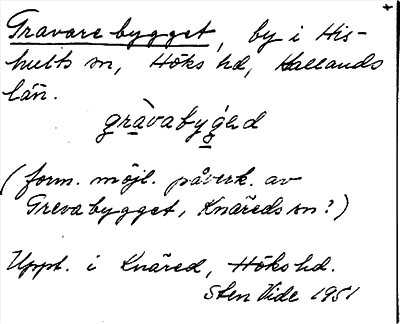 Gravare bygget, by i His-
hults sn, Höks hd, Hallands
län.
gràvabyǵəd
(form. möjl. påverk. av
Grevabygget, Knäreds sn?)
Uppt. i Knäred, Höks hd.
Sten Vide 1951